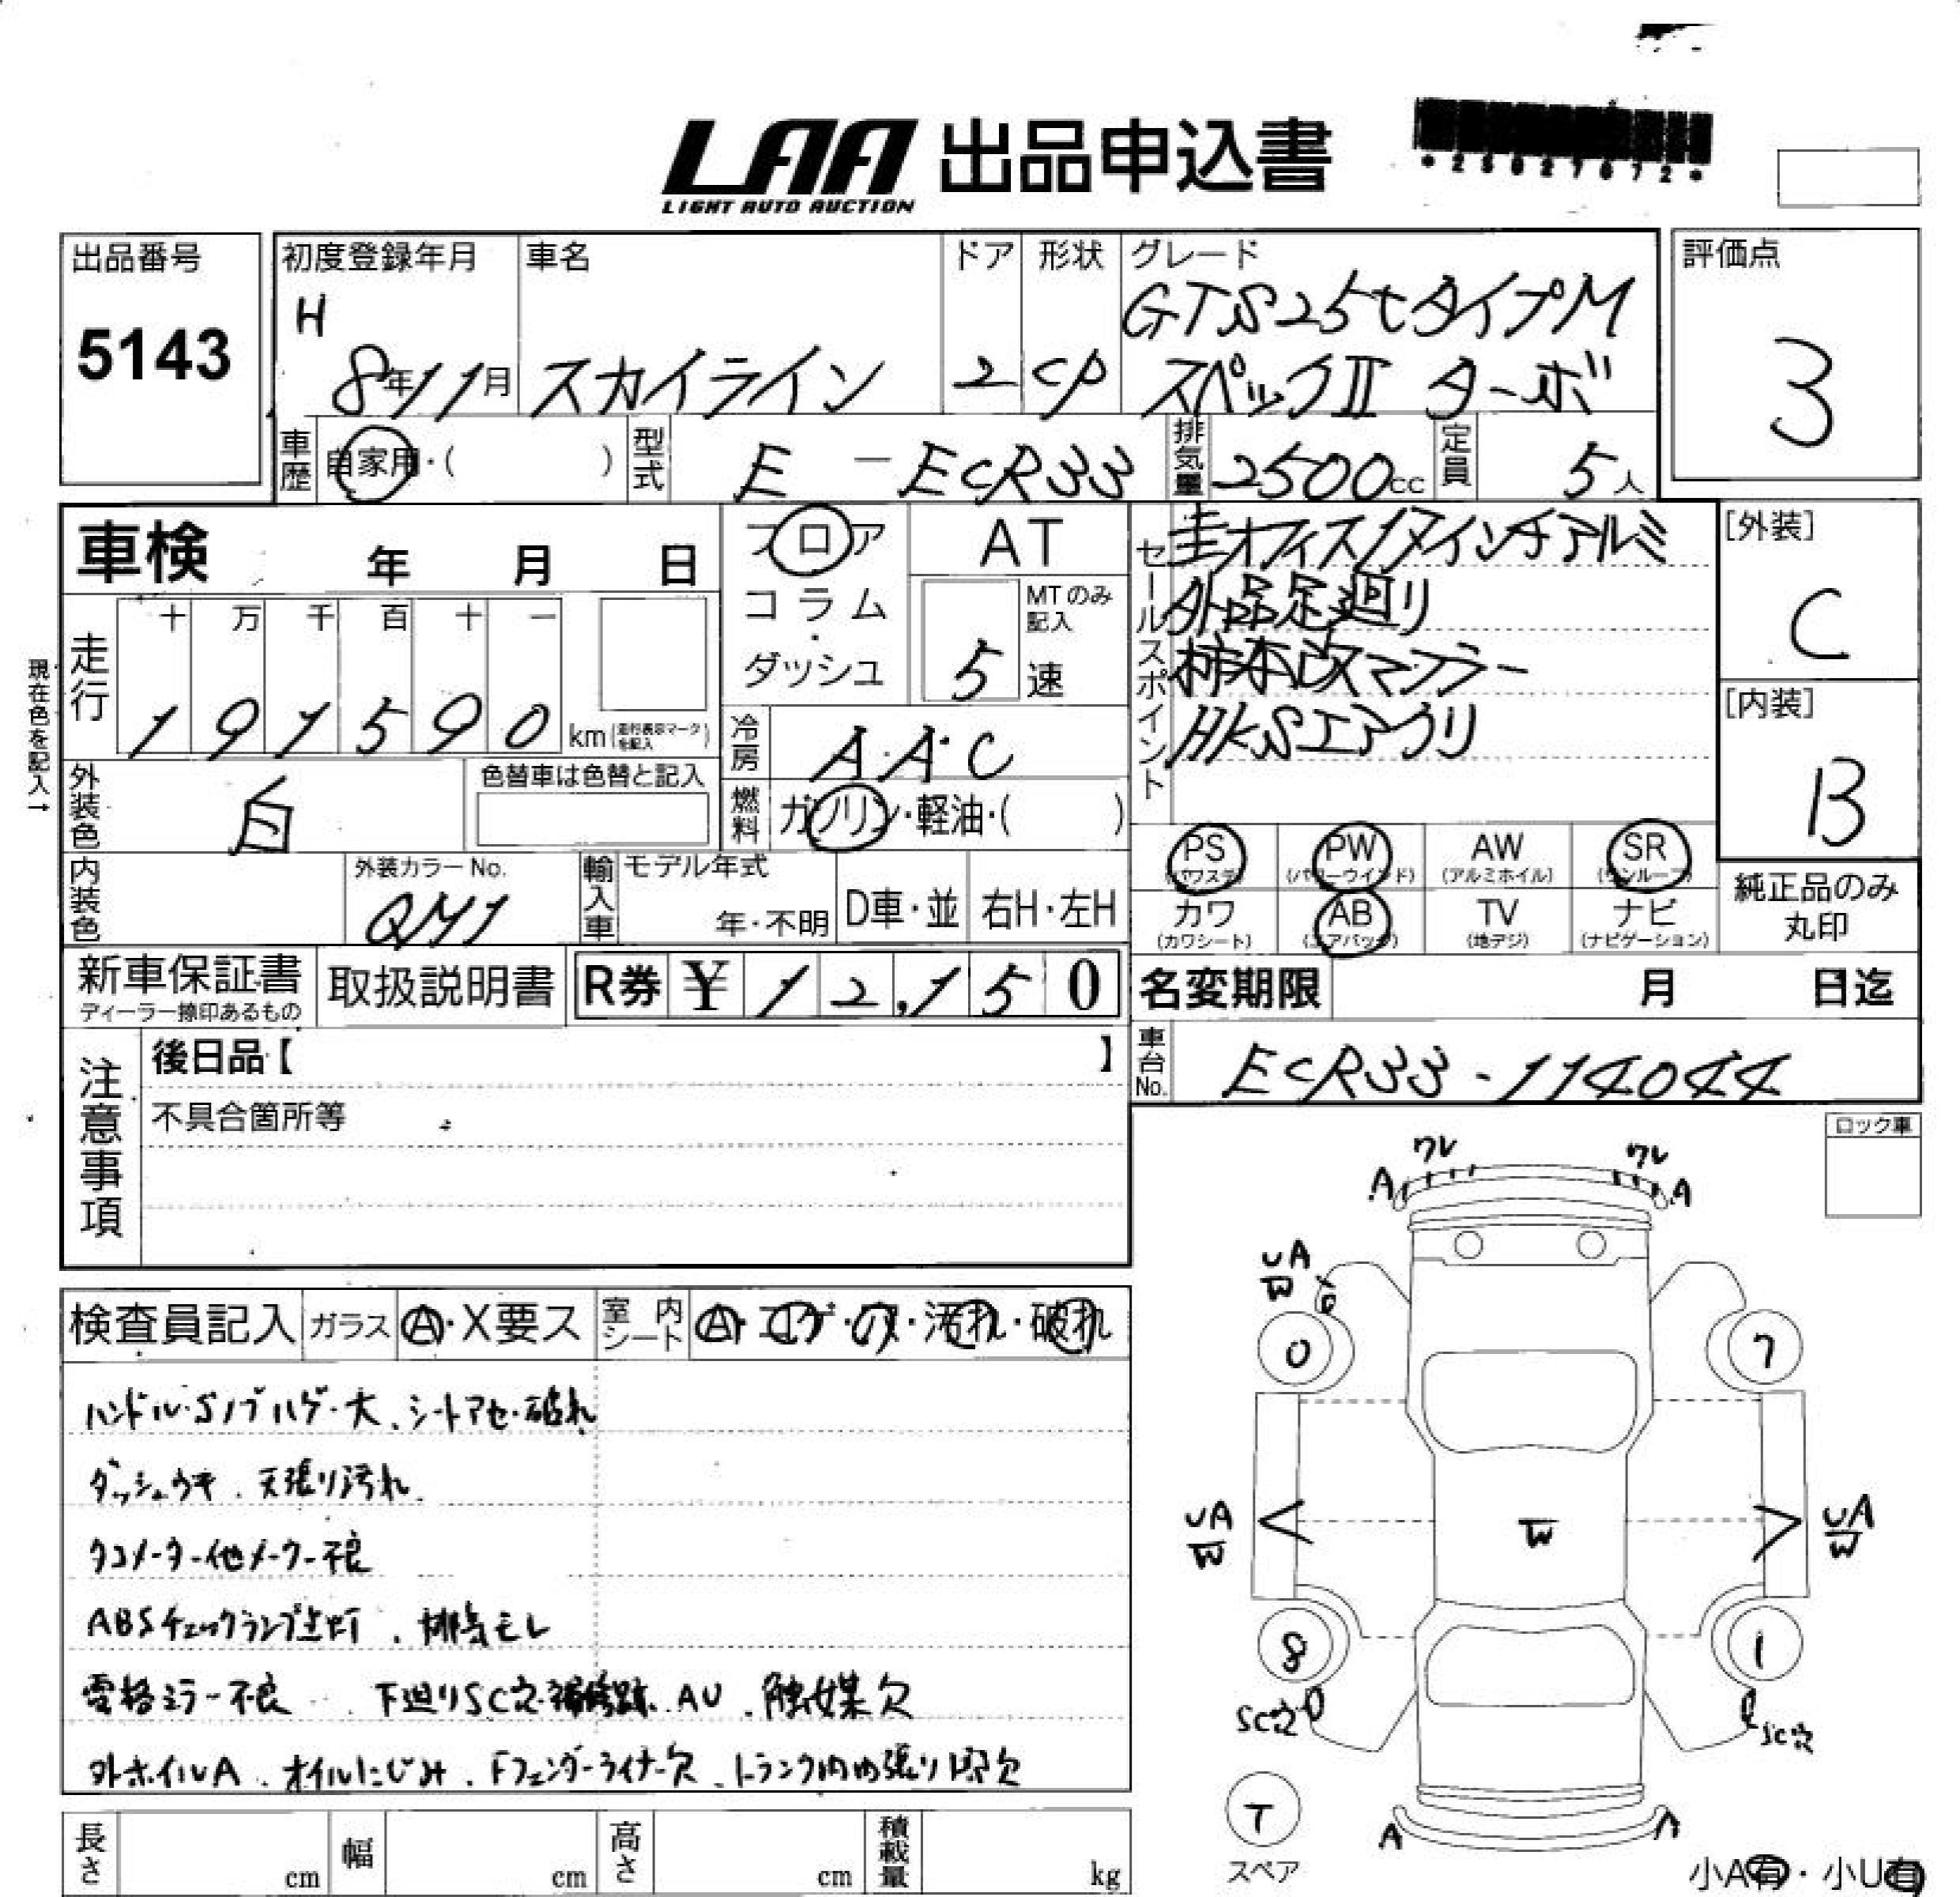 LAA 出品申込書
LIGHT AUTO AUCTION
*25027072*
出品番号
5143
初度登録年月
H
8年11月
車名
スカイライン
ドア
2
形状
CP
グレード
GTS25tタイプM
スペックⅡ ターボ
評価点
3
車歴
自家用・( )
型式
E － ECR33
排気量
2500cc
定員
5人
車検 年 月 日
フロア
コラム
・
ダッシュ
AT
MTのみ
記入
5速
セールスポイント
圭オフィス17インチアルミ
外品足廻り
柿本改マフラー
HKSエアクリ
[外装]
C
[内装]
B
現在色を記入→
走行
十 万 千 百 十 一
1 9 1 5 9 0 km(走行表示マークを記入)
冷房
A・A・C
燃料
ガソリン・軽油・( )
外装色
白
色替車は色替と記入
内装色
外装カラーNo.
QM1
輸入車
モデル年式
年・不明
D車・並
右H・左H
PS (パワステ)
PW (パワーウインド)
AW (アルミホイル)
SR (サンルーフ)
カワ (カワシート)
AB (エアバッグ)
TV (地デジ)
ナビ (ナビゲーション)
純正品のみ
丸印
新車保証書
ディーラー捺印あるもの
取扱説明書
R券 ¥ 1 2,1 5 0
名変期限 月 日迄
車台No.
ECR33-114044
注意事項
後日品【 】
不具合箇所等
ロック車
検査員記入
ガラス Ⓐ・X要ス
室内シート Ⓐ・コゲ・穴・汚れ・破れ
ハンドル・Sノブハゲ・大、シートアセ・破れ
ダッシュウキ、天張り汚れ
タコメーター他メーター不良
ABSチェックランプ点灯、排気モレ
電格ミラー不良、下廻りSC穴・補修跡、AU、触媒欠
外ホイルA、オイルにじみ、Fフェンダーライナー欠、トランク内内張り欠
ワレ ワレ
A A
UA
W
0 7
UA
W
W
UA
W
8 1
SC穴 SC穴
T
スペア
A A
長さ cm
幅 cm
高さ cm
積載量 kg
小A有・小U有